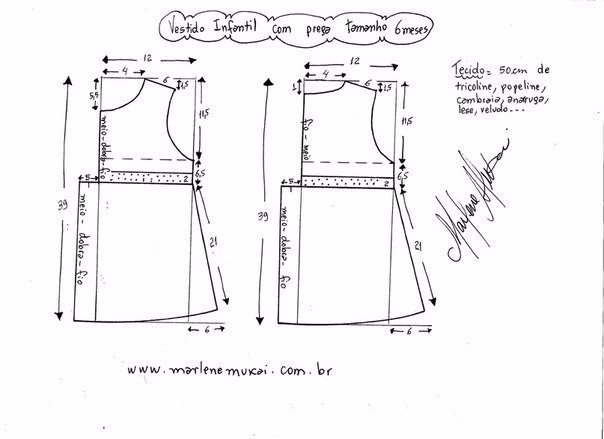 Vestido Infantil com prega tamanho 6 meses
12
4
6
1,5
5,5
11,5
meio-dobra-fio
6,5
5
2
39
meio-dobra-fio
21
6
12
4
6
1,5
1
11,5
fio-meio
6,5
5
2
39
meio-dobra-fio
21
6
Tecido = 50cm de
tricoline, popeline,
cambraia, anarruga,
lese, veludo...
Marlene Mukai
www.marlenemukai.com.br